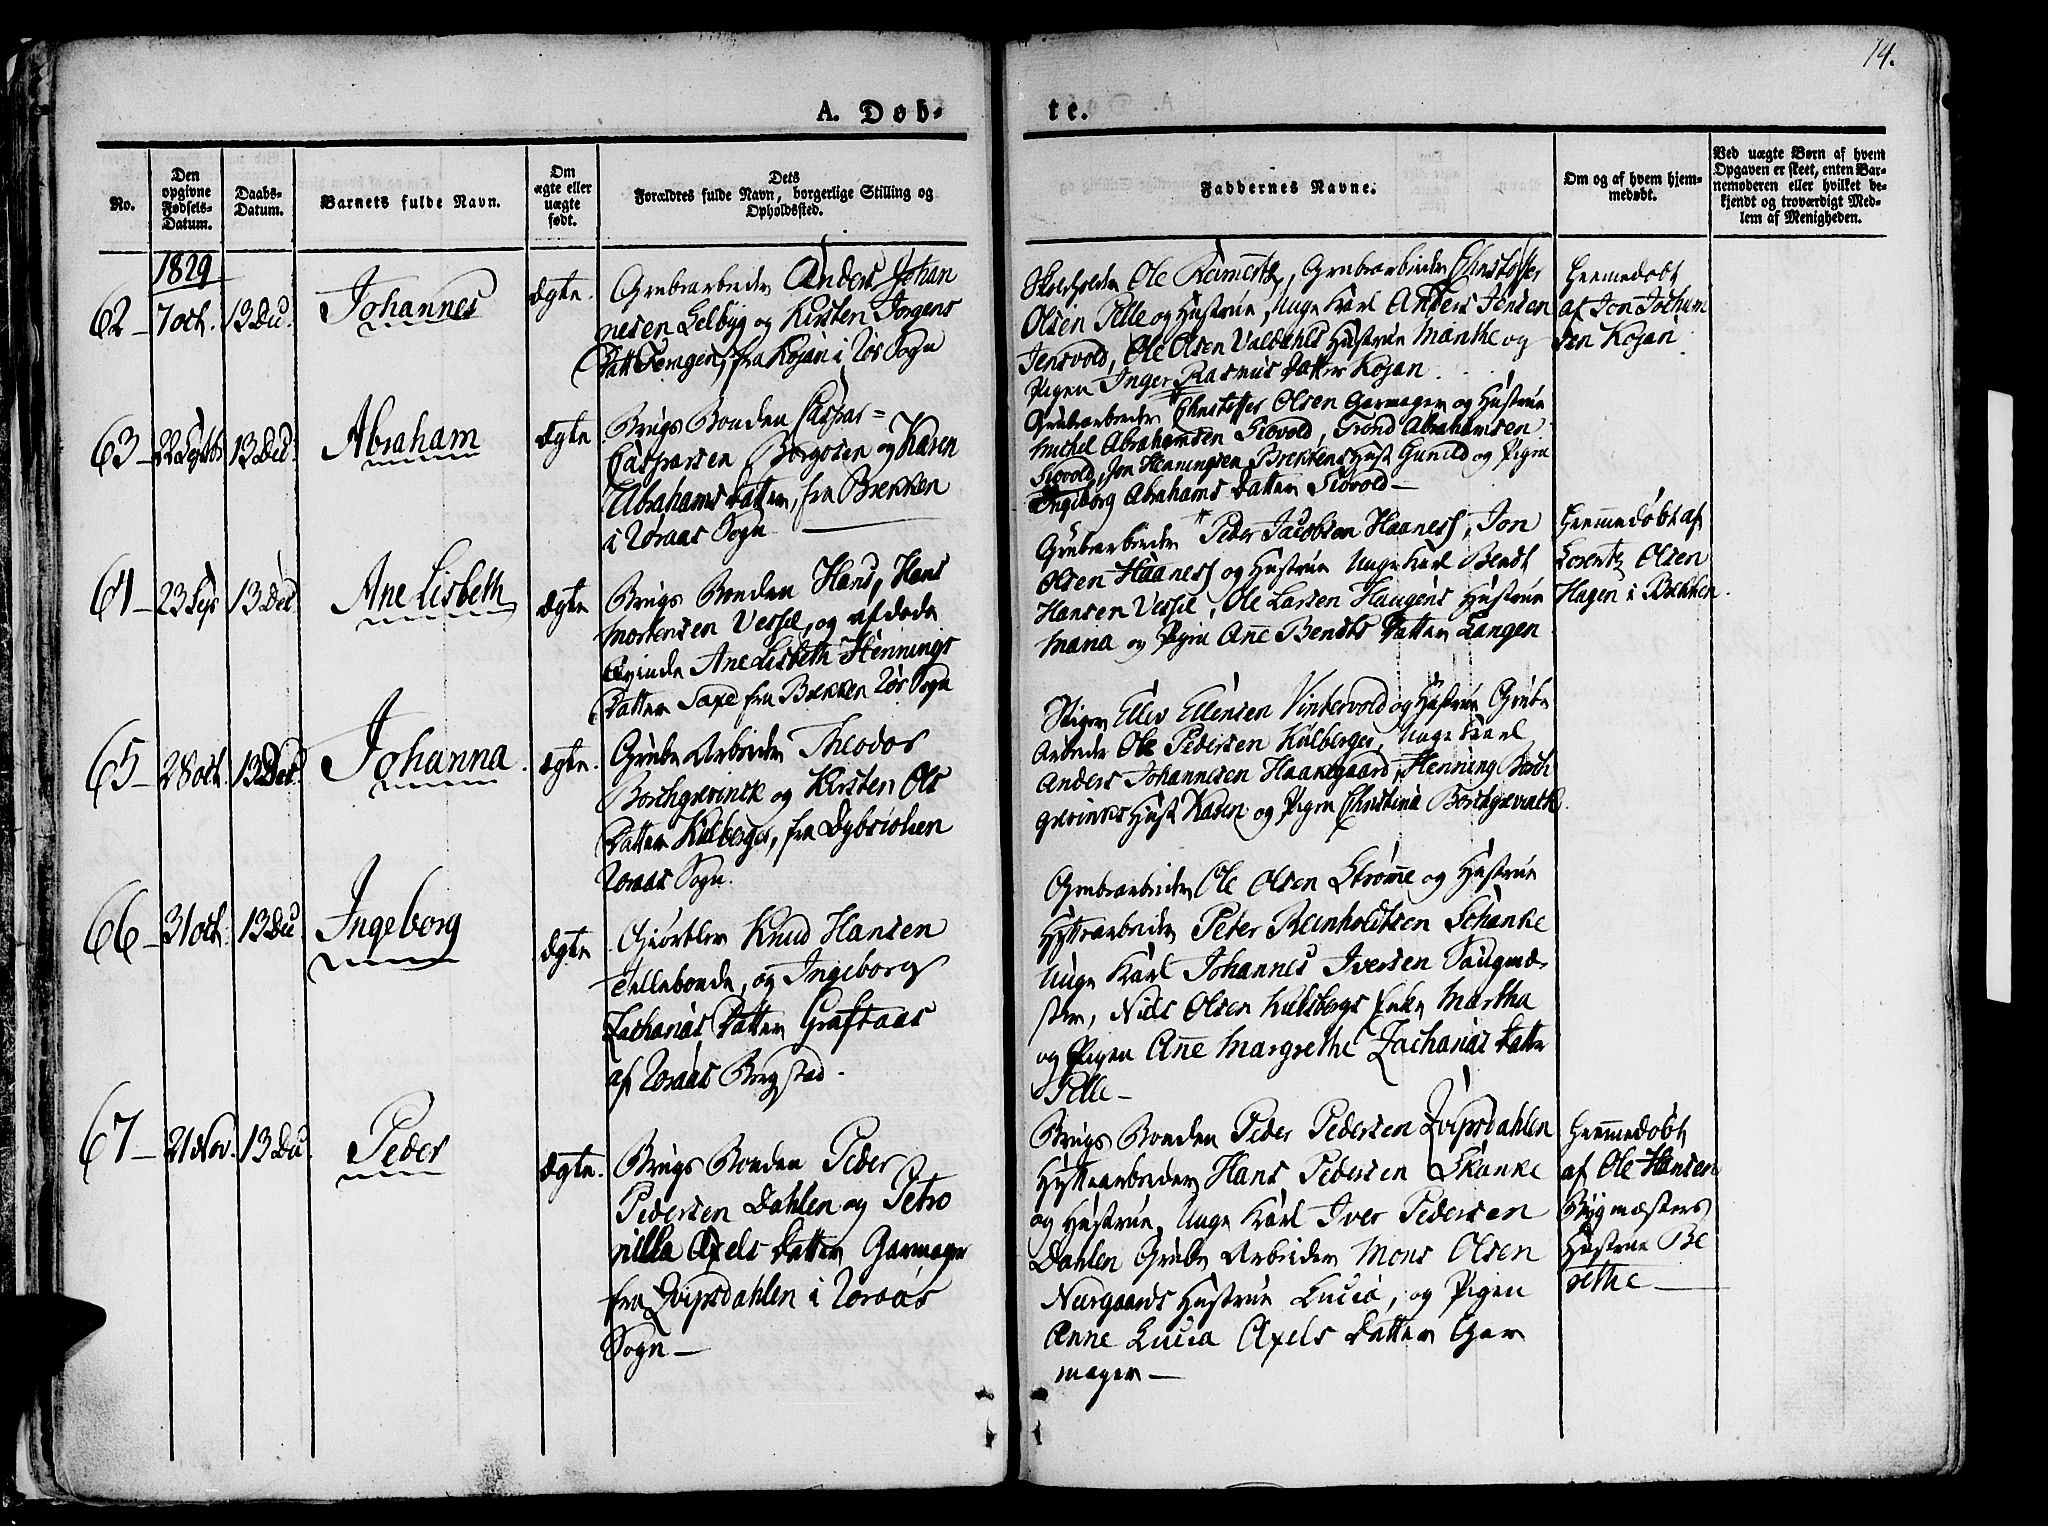 14.
A. Døb-
te.
No.
Den
opgivne
Fødsels-
Datum.
Daabs-
Datum.
Barnets fulde Navn.
Om
ægte eller
uægte
født.
Dets
Forældres fulde Navn, borgerlige Stilling og
Opholdssted.
Faddernes Navne.
Om og af hvem hjem-
medøbt.
Ved uægte Børn af hvem
Opgaven er skeet, enten Bar-
nemoderen eller hvilket be-
kjendt og troværdigt Med-
lem af Menigheden.
1829
62 - 7 oct. 13 De. Johannes ægte.
Grubearbeider Anders Johan
nesen Selbyg og Kirsten Jørgens
Datter Femgen, fra Kojan i Rør. Sogn
Ole Olsen Valdahls Hustrue Marithe og
Pigen Inger Rasmus Datter Kojan.
Olsen Pelle og Hustrue, Unge Karl Anders Jensen
Hiemmedøbt
af Jon Jotham
sen Kojan
63 - 22 Septb 13 Dec. Abraham ægte
Brugs Bonden Caspar
Caspersen Borgosen og Karen
Abrahams Datter, fra Brekken
i Röraas Sogn
Grubearbeider Christoffer Olsen Garmager og Hustrue
Michel Abrahamsen Siovold, Trond Abrahamsen
Siovold, Jon Henningsen Brekkens Hust Gunild og Pigen
Ingeborg Abrahams Datter Siovold -
64 - 23 Sep 13 Dec Ane Lisbeth ægte
Brugs Bonden Hans, Hans
Mortensen Vessel, og afdøde
Qvinde Ane Lisbeth Hennings
Datter Saxe fra Brekken Rör. Sogn
Grubearbeider Peder Jacobsen Haaness, Jon
Olsen Haaness og Hustrue Unge Karl Bendt
Hansen Vessel, Ole Larsen Haugens Hustrue
Maria og Pigen Ane Bendts Datter Langen
Hiemmedøbt af
Lorentz Olsen
Hagen i Brekken.
65 - 28 oct. 13 Dec Johanna ægte.
Grube Arbeider Theodor
Borchgrevinck og Kirsten Ols
Datter Kulberger, fra Dybsiohen
Röraas Sogn.
Stiger Ellev Ellensen Vintervold og Hustrue Grube
Arbeider Ole Pedersen Kulberger, Unge Karl
Anders Johannesen Haanegaard, Henning Borch
grevinks Hust Karen og Pigen Christina Borchgrevink.
66 - 31 oct. 13 De Ingeborg ægte
Giørtler Knud Hansen
Tellebonde, og Ingeborg
Zacharias Datter Graftaas
af Röraas Bergstad.
Grubearbeider Ole Olsen Strømme og Hustrue
Hytte arbeider Peter Reinholdtsen Schanke
Unge Karl Johannes Iversen Saugmæ-
ster, Niels Olsen Kulsbergs Enke Martha
og Pigen Ane Margrethe Zacharias Datter
Pelle -
67 - 21 Nov. 13 De. Peder ægte.
Brugs Bonden Peder
Pedersen Dahlen og Petro
nilla Axels Datter Garmager
fra Qvipsdahlen i Röraas
Sogn -
Brugs Bonden Peder Pedersen Qvipsdahlen
Hytte arbeider Hans Pedersen Skanke
og Hustrue, Unge Karl Iver Pedersen
Dahlen Grube Arbeider Mons Olsen
Nürgaards Hustrue Lucia, og Pigen
Anne Lucia Axels Datter Gar
mager -
Hiemmedøbt
af Ole Hansen
Bygmæsters
Hustrue Be
rethe -